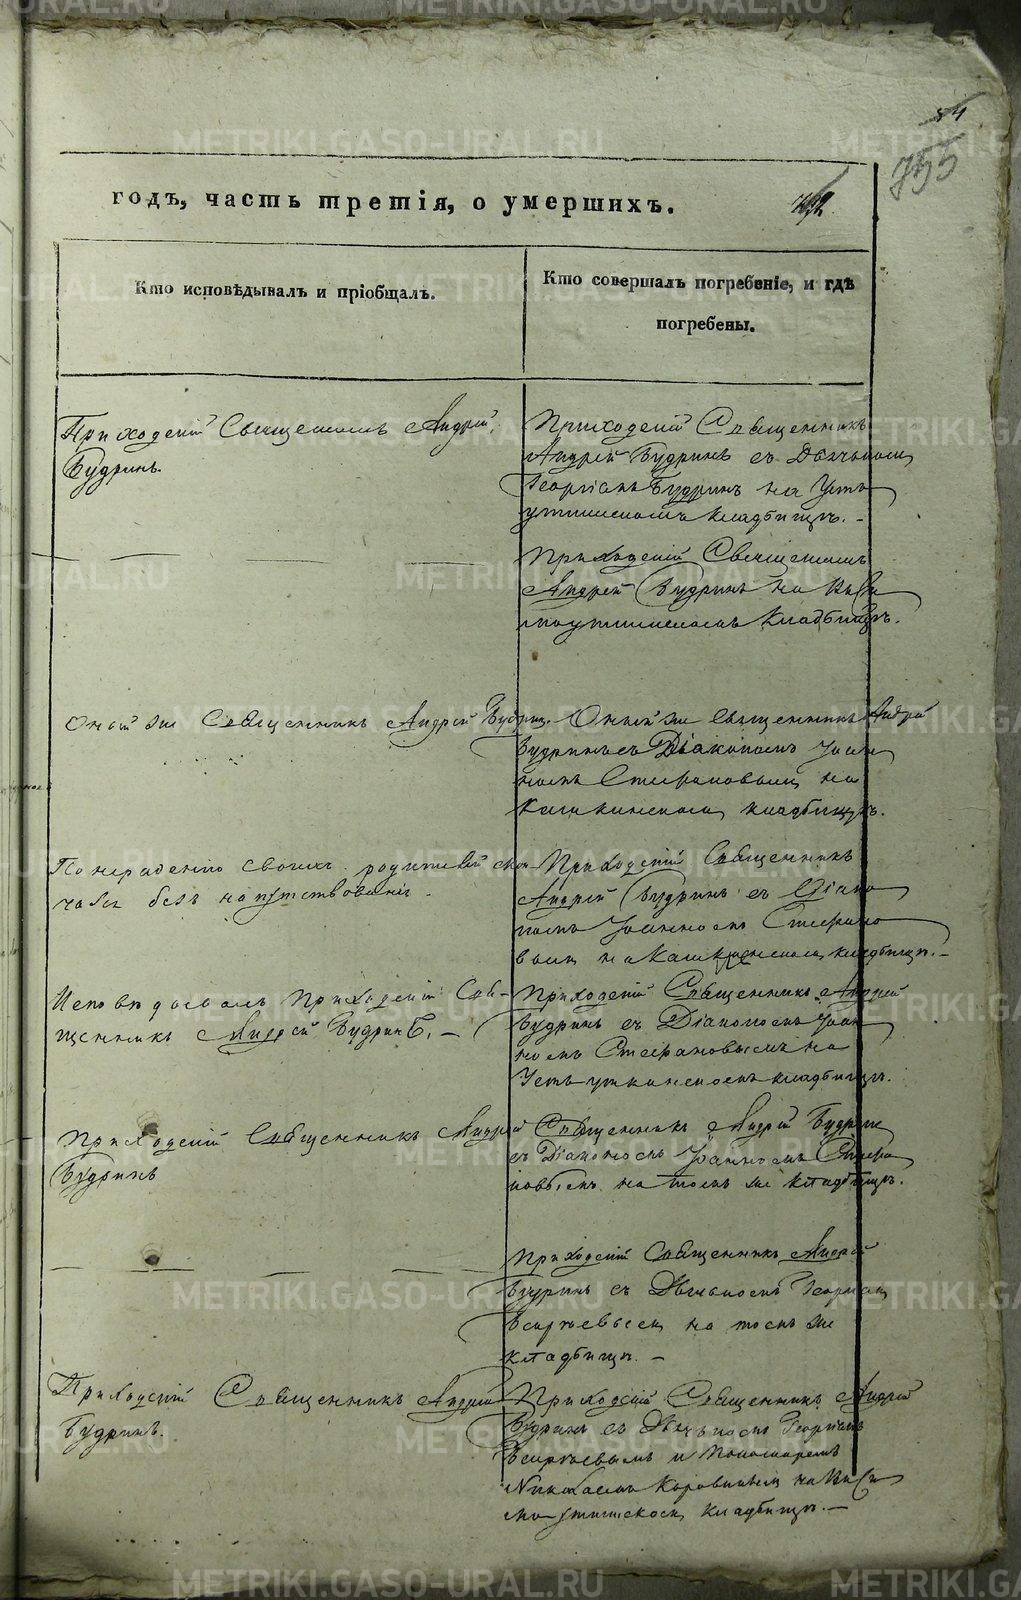 METRIKI.GASO-URAL.RU
84
755
годъ, часть третія, о умершихъ.
Кто исповѣдывалъ и пріобщалъ.
Кто совершалъ погребеніе, и гдѣ
погребены.
Приходскій Священникъ Андрей
Будринъ.
Приходскій Священникъ
Андрей Будринъ съ Дьячкомъ
Георгіемъ Будринъ на Усть
уткинскомъ кладбищѣ. -
Приходскій Священникъ
Андрей Будринъ на Виси
моуткинскомъ кладбищѣ.
Оной же Священникъ Андрей Будринъ.
Оный же Священникъ Андрей
Будринъ съ Діакономъ Іоан
номъ Стефановымъ на
Кашкинскомъ кладбищѣ.
По нераденію своихъ родителей скон
чался безъ напутствованія.
Приходскій Священникъ
Андрей Будринъ съ Діако
номъ Іоанномъ Стефано
вымъ на Кашкинскомъ кладбищѣ. -
Исповѣдывалъ Приходскій Свя-
щенникъ Андрей Будринъ. -
Приходскій Священникъ Андрей
Будринъ съ Діакономъ Іоан
номъ Стефановымъ на
Усть уткинскомъ кладбищѣ.
Приходскій Священникъ Андрей
Будринъ
Священникъ Андрей Будринъ
съ Діакономъ Іоанномъ Стефа
новымъ на томъ же кладбищѣ.
Приходскій Священникъ Андрей
Будринъ съ Дьячкомъ Георгіемъ
на томъ же
кладбищѣ. -
Приходскій Священникъ Андрей
Будринъ.
Приходскій Священникъ Андрей
Будринъ съ Дьячкомъ Георгіемъ
и Пономаремъ
Николаемъ Коровинымъ на Виси
моуткинскомъ кладбищѣ. -